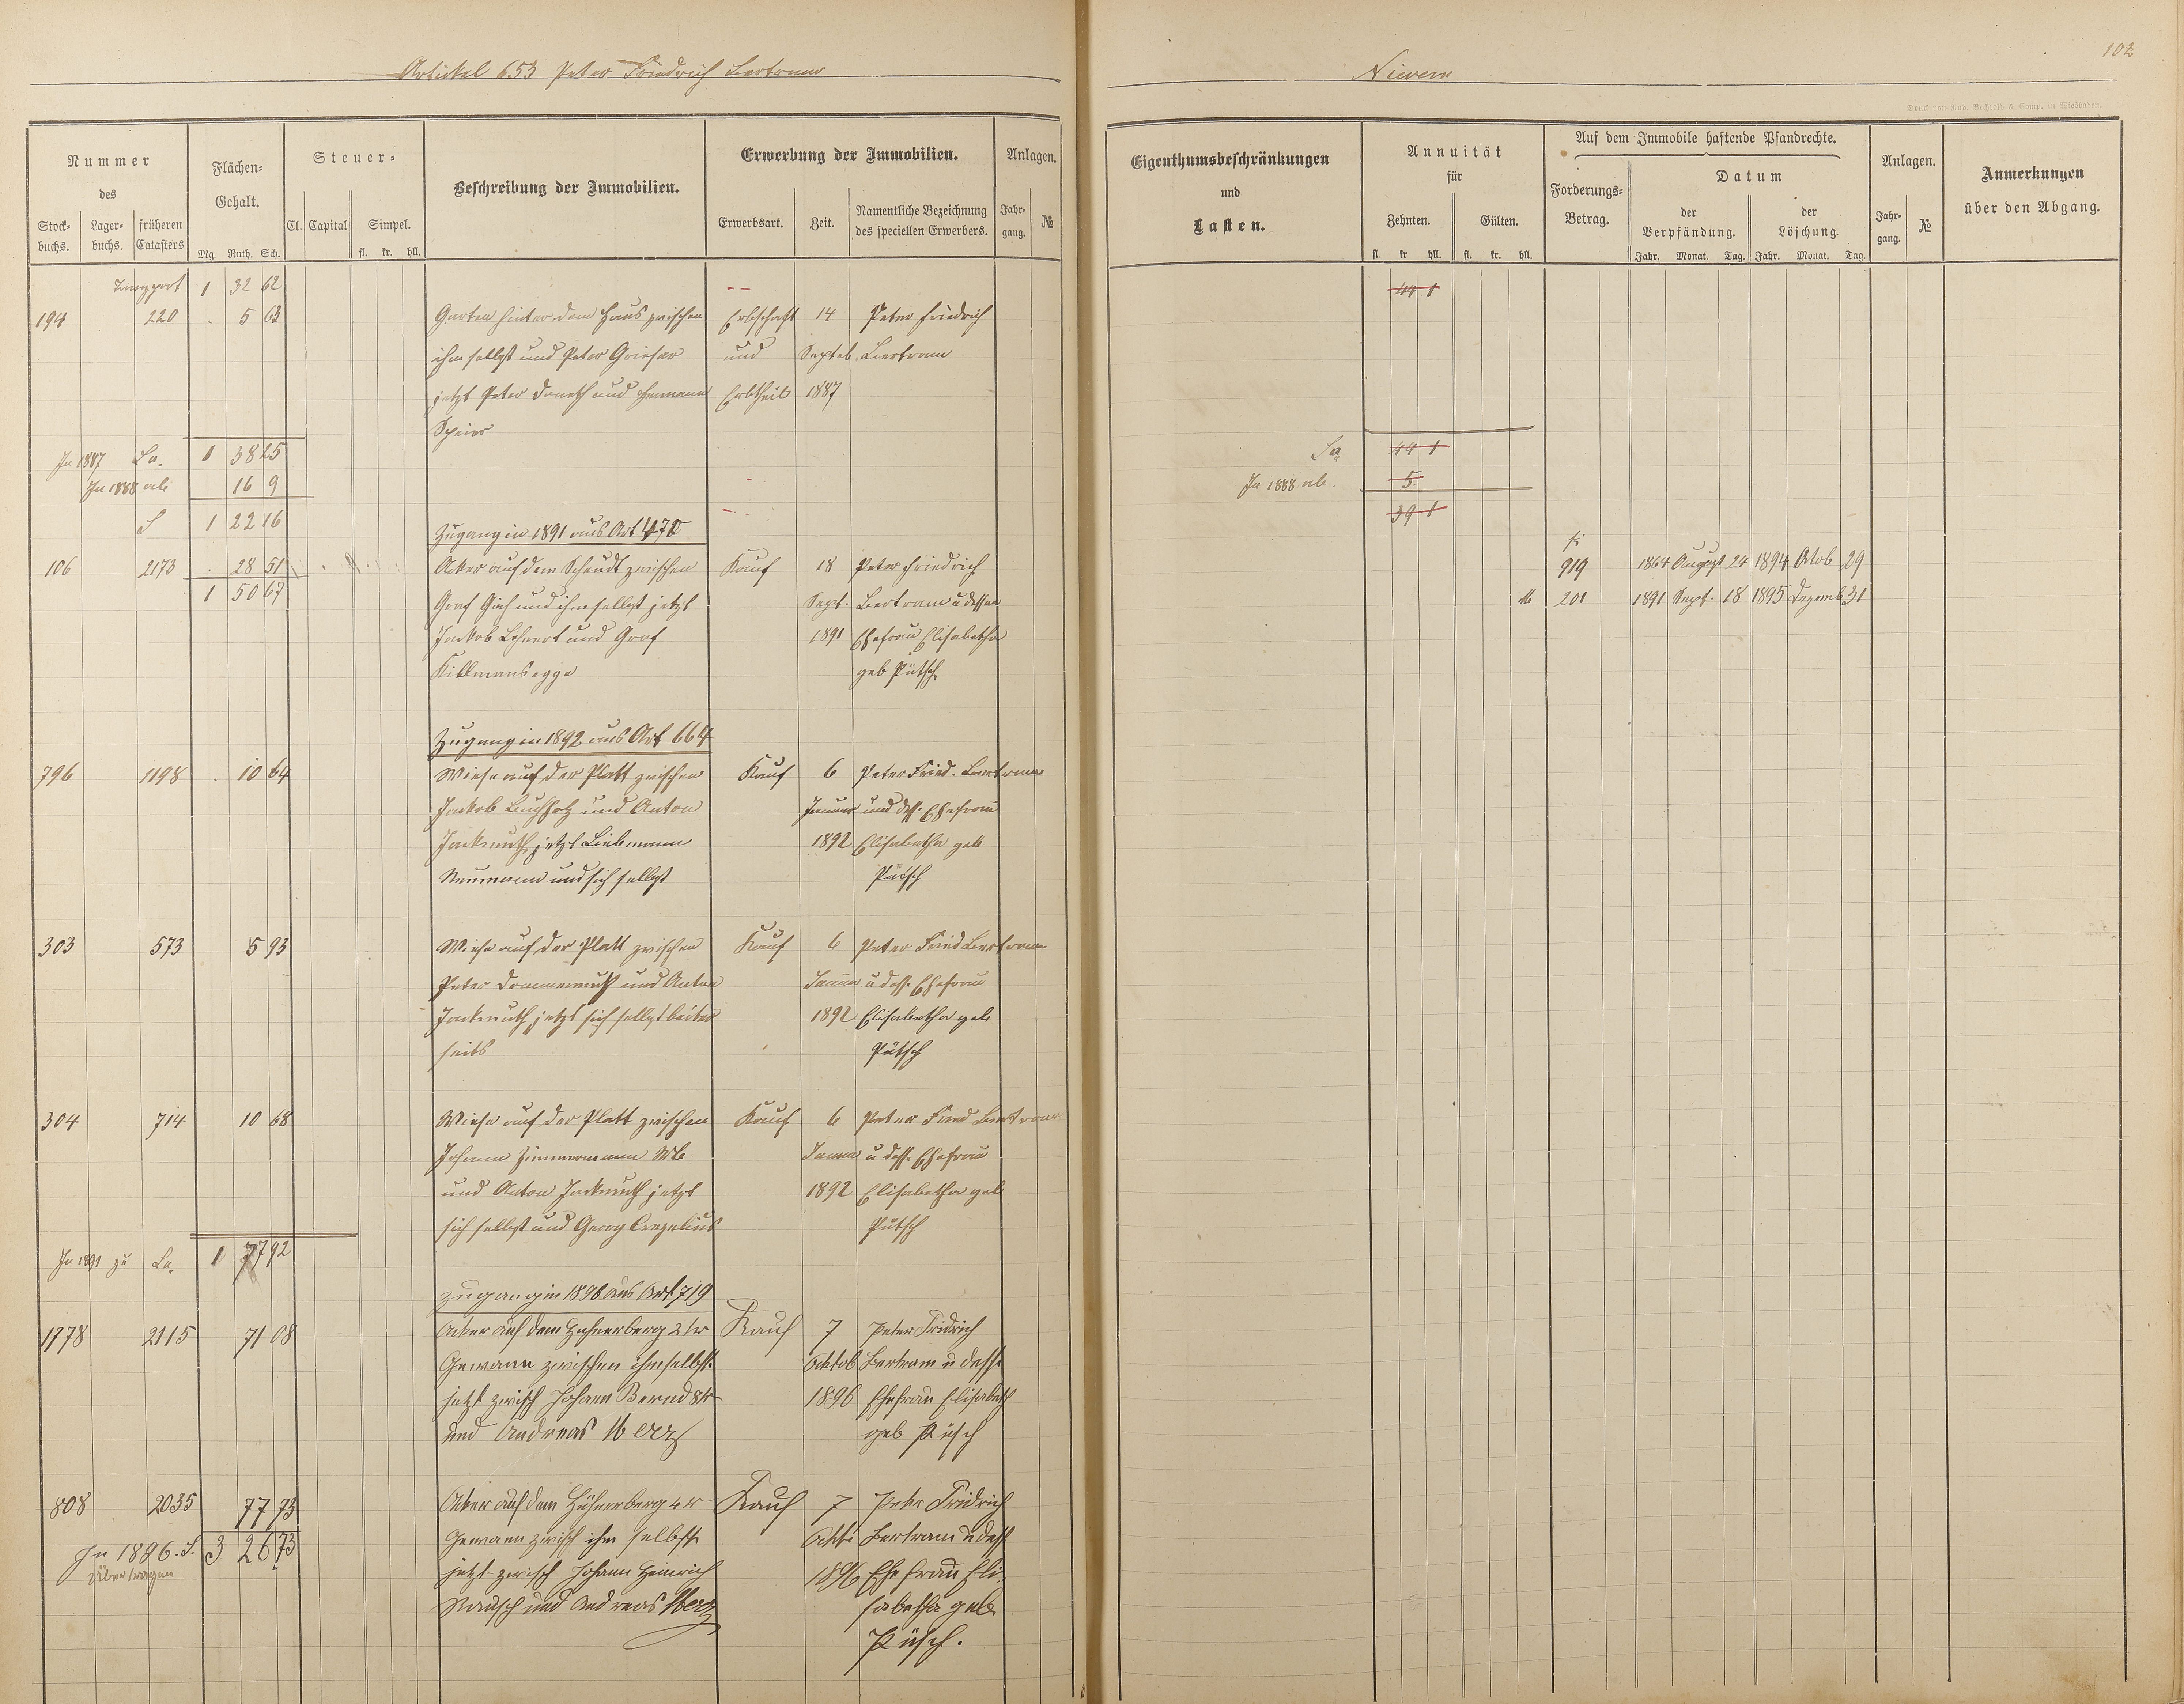 Artickel 653 Peter Friedrich Bertram
Nievern
102
Druck von Rud. Bechtold & Comp. in Wiesbaden.
Nummer
des
Stock-buchs.
Lager-buchs.
früheren Catasters
Flächen-Gehalt.
Mg. Ruth. Sch.
Steuer-
Cl. Capital Simpel.
fl. kr. hll.
Beschreibung der Immobilien.
Erwerbung der Immobilien.
Erwerbsart.
Zeit.
Namentliche Bezeichnung des speciellen Erwerbers.
Anlagen.
Jahr-gang.
№
Eigenthumsbeschränkungen
und
Lasten.
Annuität
für
Zehnten.
Gülten.
fl. kr hll. fl. kr. hll.
Auf dem Immobile haftende Pfandrechte.
Forderungs-Betrag.
Datum
der Verpfändung.
der Löschung.
Jahr. Monat. Tag. Jahr. Monat. Tag.
Anlagen.
Jahr-gang.
№
Anmerkungen
über den Abgang.
Transport 1 32 62
44 1
194 220 . 5 63 Garten hinter dem Haus zwischen Erbschaft 14 Peter Friedrich
ihm selbst und Peter Grieser und Septeb Bertram
jetzt Peter Donath und Hermann Erbtheil 1887
Speier
In 1887 Sa. 1 38 25
Sa 44 1
In 1888 ab 16 9
In 1888 ab. 5
S 1 22 16
39 1
Zugang in 1891 aus Art 470
fl
106 2173 . 28 51 Acker auf dem Scheudt zwischen Kauf 18 Peter Friedrich
919 1864 August 24 1894 Octob 29
1 50 67 Graf Giech und ihm selbst jetzt Sept. Bertram u dessen
M 201 1891 Sept. 18 1895 Dezemb 31
Jackob Lehnert und Graf 1891 Ehefrau Elisabetha
Killmansegge geb Pütsch
Zugang in 1892 aus Art 664
796 1198 . 10 64 Wiese auf der Platt zwischen Kauf 6 Peter Fried. Bertram
Jackob Buchholz und Anton Januar und dess. Ehefrau
Jackmuth jetzt Liebmann 1892 Elisabetha geb
Neumann und sich selbst Pütsch
303 573 5 93 Wiese auf der Platt zwischen Kauf 6 Peter Fried Bertram
Peter Dommermuth und Anton Januar u dess. Ehefrau
Jackmuth jetzt sich selbst beider 1892 Elisabetha geb
seits Pütsch
304 714 10 68 Wiese auf der Platt zwischen Kauf 6 Peter Fried Bertram
Johann Zimmermann Wb Januar u dess. Ehefrau
und Anton Jackmuth jetzt 1892 Elisabetha geb
sich selbst und Georg Crezelius Pütsch
In 1891 zu Sa. 1 77 92
Zugang in 1896 aus Art 719
1178 2115 71 08 Acker auf dem Huhnerberg 2tr Kauf 7 Peter Fridrich
Gewann zwischen ihm selbst Oktob Bertram u dess.
jetzt zwisch Johann Bernd 8tr 1896 Ehefrau Elisabeth
und Andreas Merz geb Püsch
808 2035 77 73 Acker auf dem Hühnerberg 4r Kauf 7 Peter Fridrich
In 1896. S. 3 26 73 Gewann zwisch ihm selbst Okto Bertram u dess
Übertragen jetzt zwisch Johann Heinrich 1896 Ehefrau Eli
Rausch und Andreas Merz sabetha geb
Püsch.